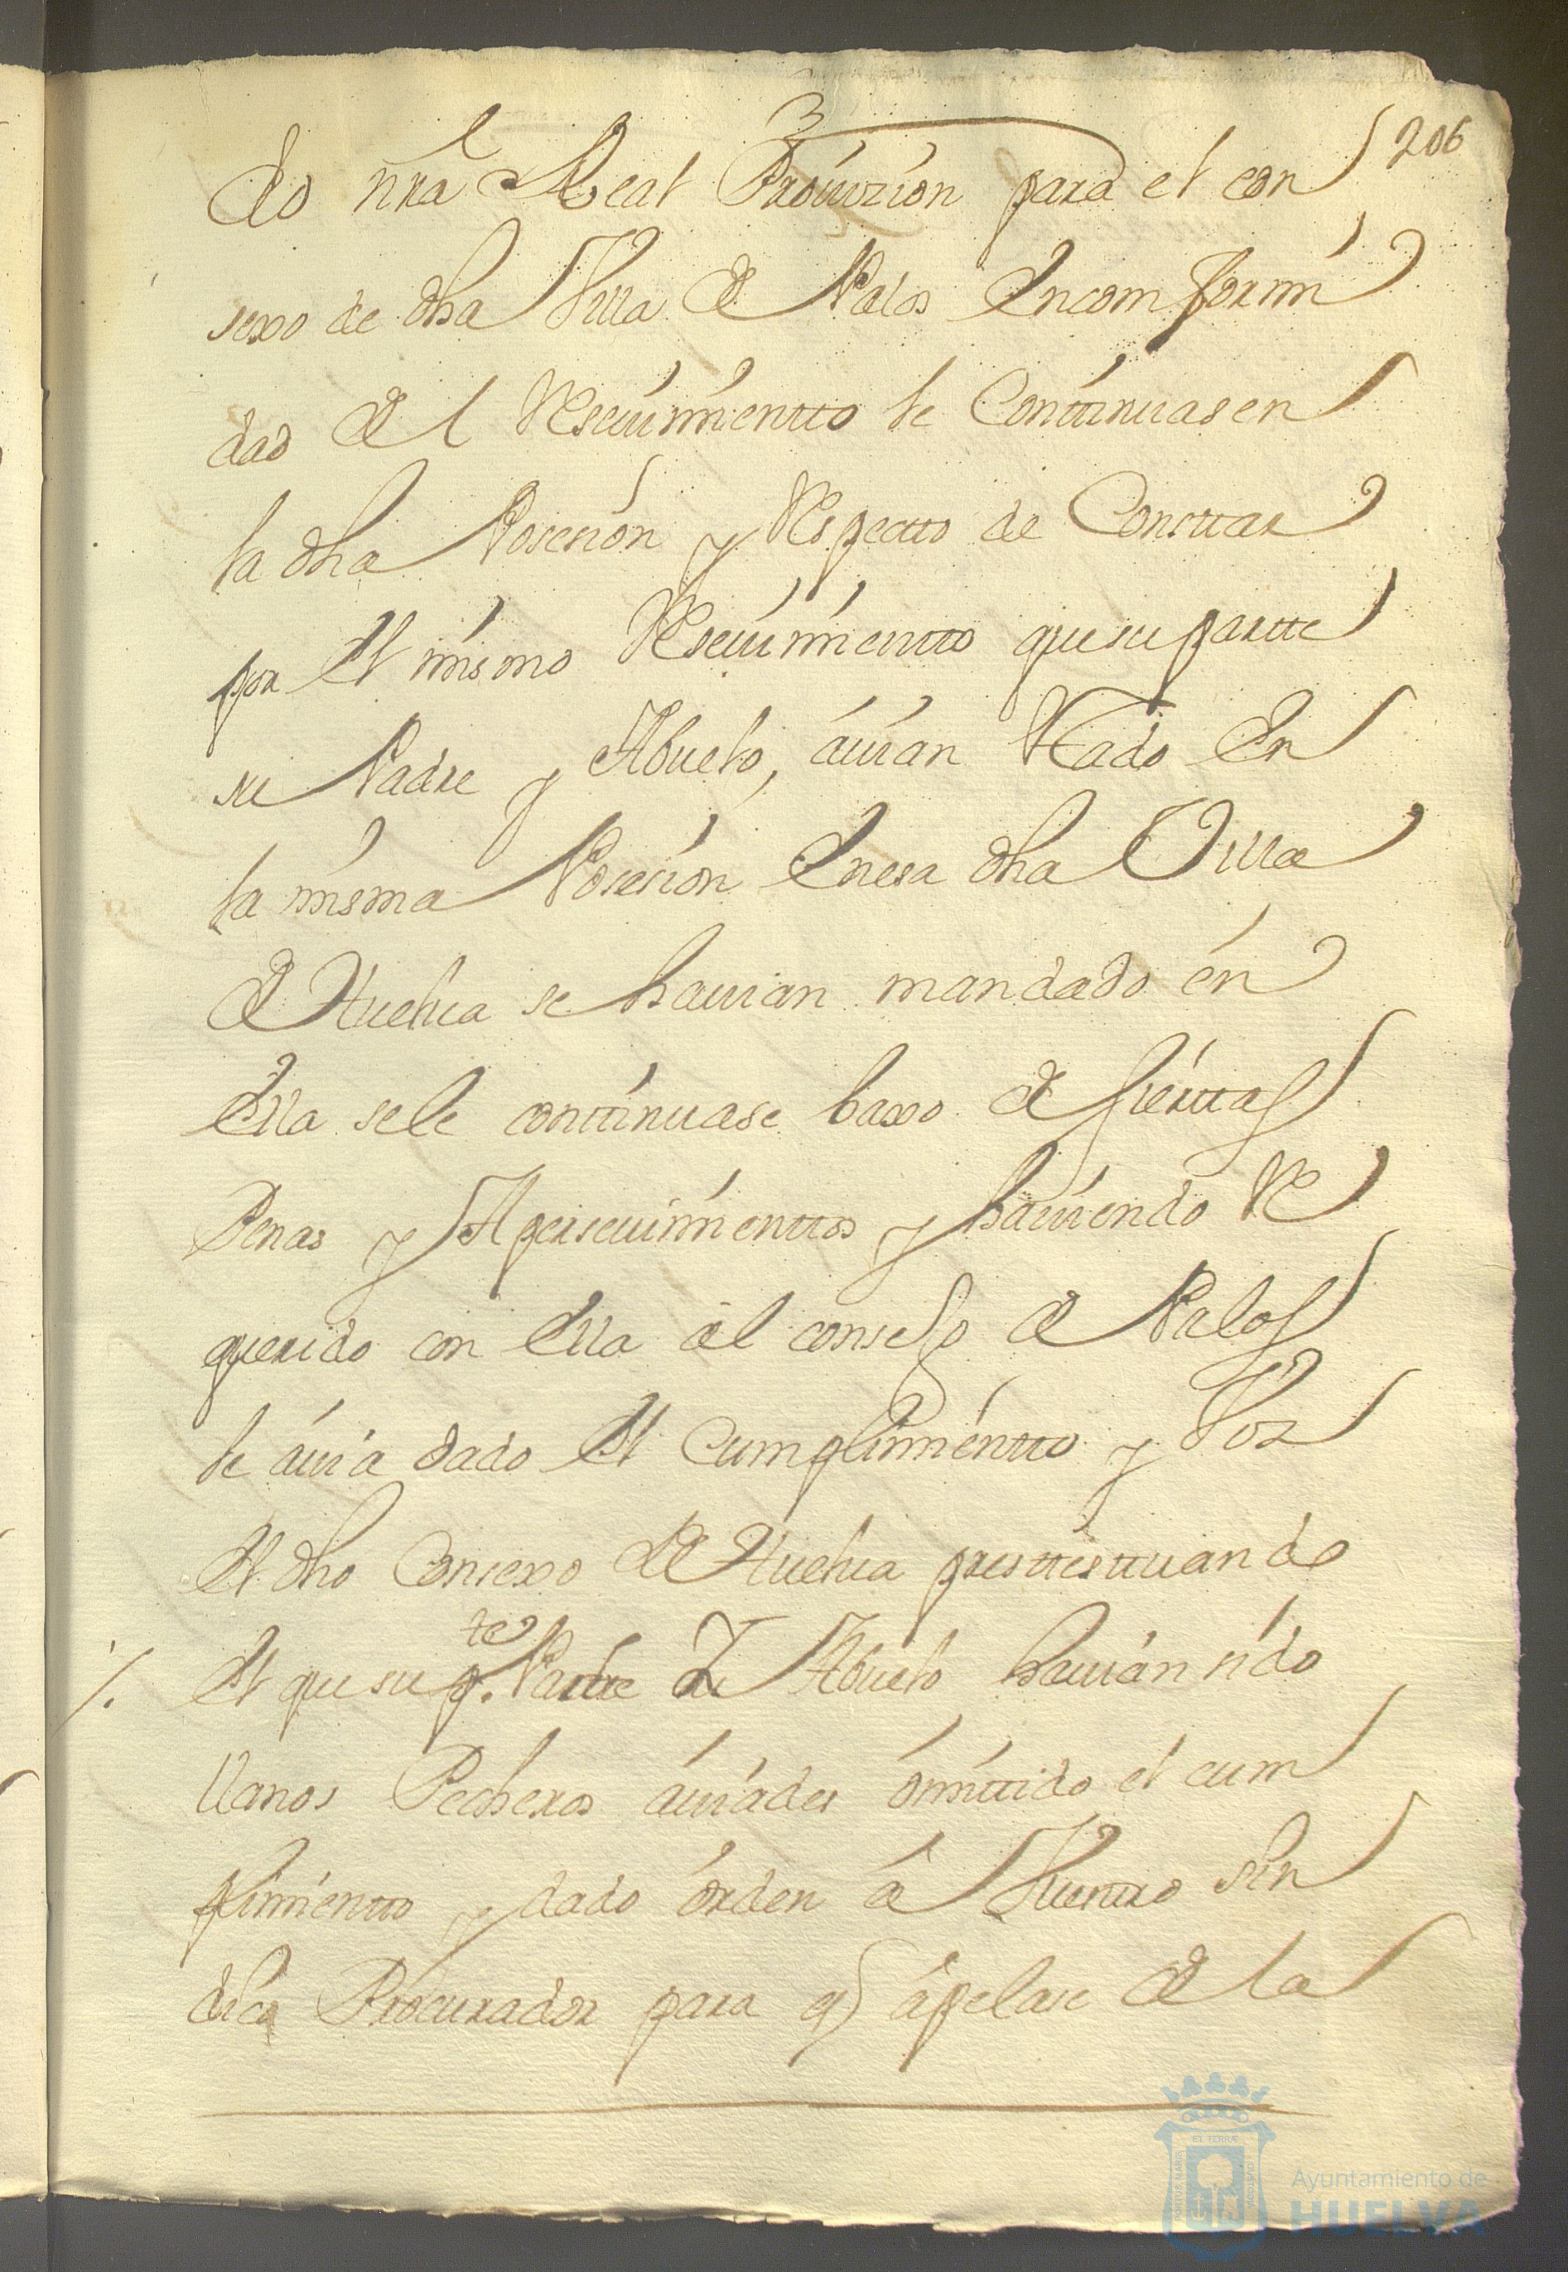 3
206
do nrã Real Prouizion para el con
sexo de dha Villa de Palos Enconformi
dad del Reseuimientto le Conttinuasen
la dha Posesion y Respectto de Consttar
por el mismo Reseuimientto que su partte
su Padre y Abuelo, auian estado En
la misma Posesion En esa dha Villa
de Huelua se hauian mandado en
Ella se le conttinuase baxo de sierttas
Penas y Aperseuimienttos y hauiendo Re
querido con Ella al consejo de Palos
le auia dado el Cumplimientto y Por
el dho Consexo de Huelua presttesttuando
el que su p.te Padre y Abuelo hauian sido
llanos Pecheros auiades omittido el cum
plimientto y dado orden a Vuesttro Sin
dico Procurador para q apelase de la
Ayuntamiento de
HUELVA